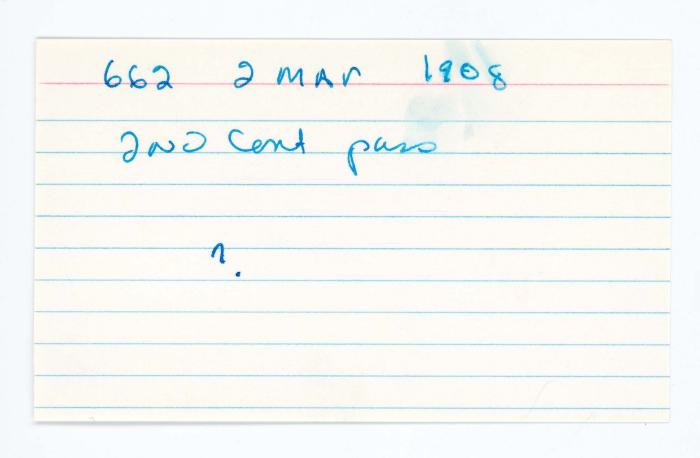 662 2 MAR 1908
2ND Cent pass
?